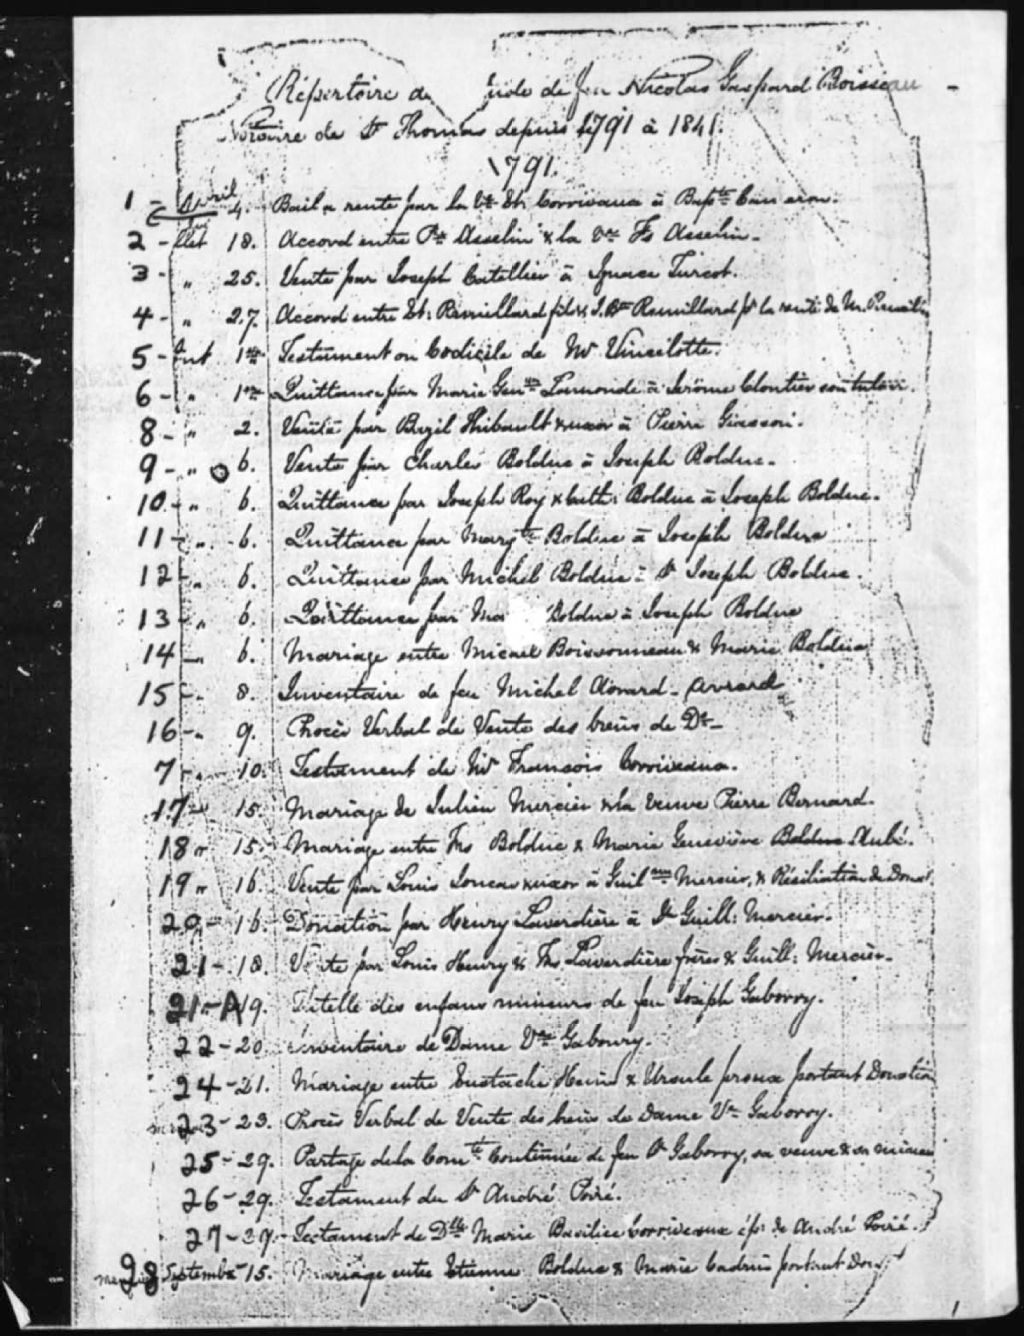 Répertoire de ude de feu Nicolas Gaspard Boisseau
Notaire de St Thomas depuis 1791 à 1841.
1791.
1 - Avril 4. Bail a rente par la Ve Et. Corriveaux à Bapte
2 - Llet 18. Accord entre Pre Asselin & la Ve Fs Asselin.
3 - " 25. Vente par Joseph Catellier à Ignace Turcot.
4 - " 27. Accord entre Et: Remillard fils & J. Bte Remillard pr la rente de M. Remillard
5 - Aut 1er Testament ou Codicile de Mr Vincelotte.
6 - " 1er Quittance par Marie Genve Lamonde à Jerôme Cloutier
8 - " 2. Vente par Bazil Thibault & uxor à Pierre Giasson.
9 - " 6. Vente par Charles Bolduc à Joseph Bolduc.
10 - " 6. Quittance par Joseph Roy & Cath: Bolduc à Joseph Bolduc.
11 - " 6. Quittance par Margte Bolduc à Joseph Bolduc
12 - " 6. Quittance par Michel Bolduc à St Joseph Bolduc.
13 - " 6. Quittance par Ma Bolduc à Joseph Bolduc
14 - 6. Mariage entre Micael Boissonneau & Marie Bolduc
15 - " 8. Inventaire de feu Michel Avrard - Avrard
16 - " 9. Procès Verbal de Vente des biens de Dt -
7 - " 10. Testament de Mr Francois Corriveaux.
17 - " 15. Mariage de Julien Mercier & la veuve Pierre Bernard.
18 " 15. Mariage entre Frs Bolduc & Marie Geneviève Bolduc Aubé.
19 " 16. Vente par Louis Loncas & uxor à Guilme Mercier, & Résiliation de Donat
20 - 16. Donation par Henry Laverdière à St Guill: Mercier.
21 - 18. Vente par Louis Henry & Frs Laverdière frères & Guill: Mercier.
21-A 19. Tutelle des enfans mineurs de feu Joseph Gaborry.
22 - 20 Inventaire de Dame Ve Gaboury.
24 - 21. Mariage entre Eustache & Ursule proux portant Donation
23 - 23. Procès Verbal de Vente des biens de Dame Ve Gaborry.
25 - 29. Partage de la Comté Continuée de feu St Gaborry, sa veuve & ses mineurs
26 - 29. Testament du St André Poiré.
27 - 29. Testament de Dlle Marie Basilice Corriveaux ép: de André Poiré.
28 Septembre 15. Mariage entre Etienne Bolduc & Marie Cadrin portant Don
1